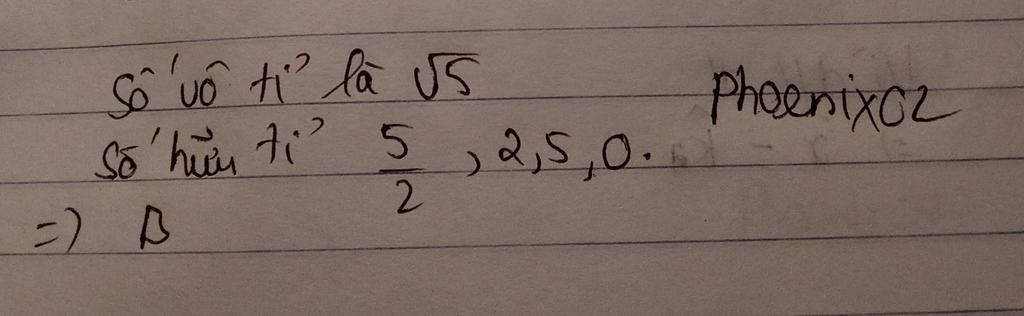 Số vô tỉ là √5
PhoenixCZ
Số hữu tỉ 5/2, 2,5, 0.
=) B